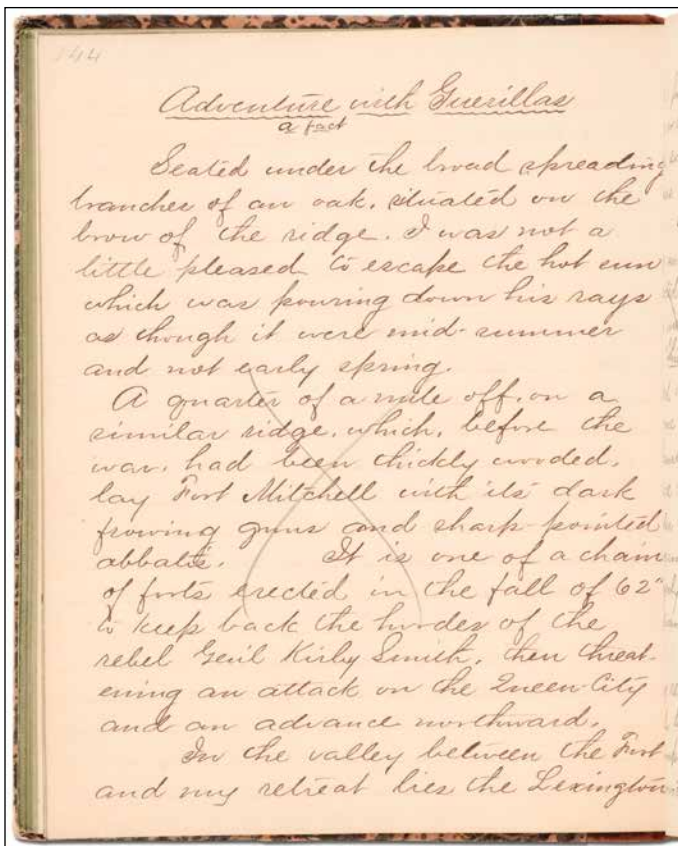 144
Adventure with Guerillas
a fact
Seated under the broad spreading
branches of an oak, situated on the
brow of the ridge. I was not a
little pleased to escape the hot sun
which was pouring down his rays
as though it were mid-summer
and not early spring.
A quarter of a mile off, on a
similar ridge, which, before the
war, had been thickly wooded,
lay Fort Mitchell with its dark
frowing guns and sharp-pointed
abbatis. It is one of a chain
of forts erected in the fall of 62"
to keep back the hordes of the
rebel Genl Kirby Smith, then threat-
ening an attack on the Queen-City
and an advance northward.
In the valley between the Fort
and my retreat lies the Lexington